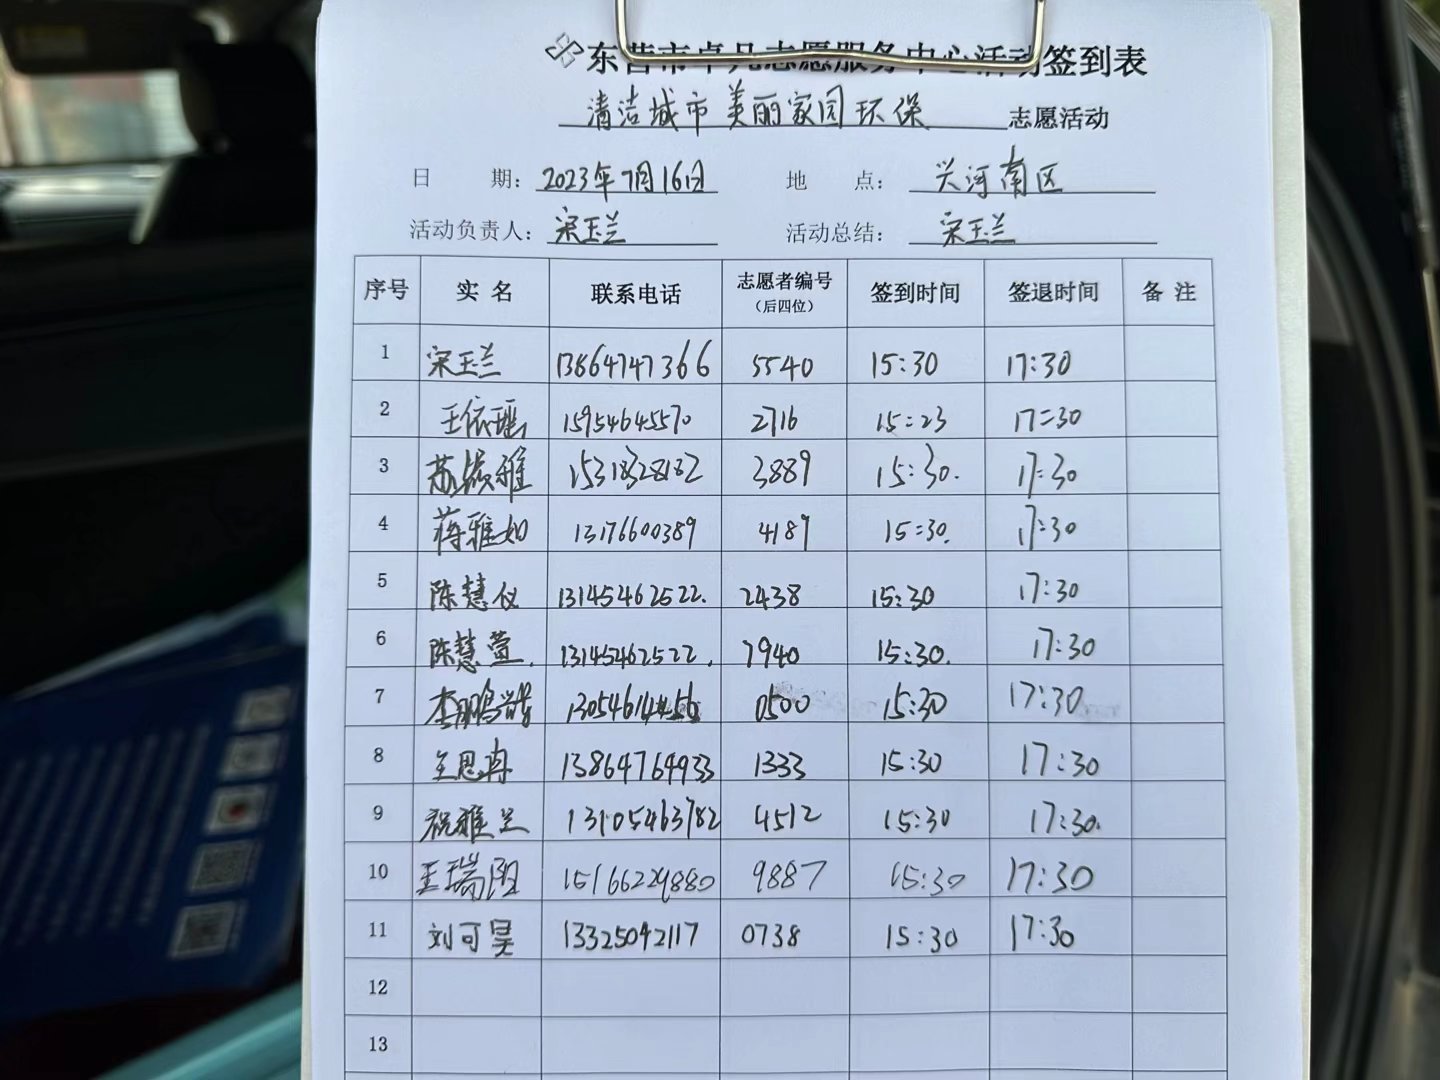 东营市卓凡志愿服务中心活动签到表
清洁城市美丽家园环保 志愿活动
日 期: 2023年7月16日 地 点: 兴河南区
活动负责人: 宋玉兰 活动总结: 宋玉兰
序号 实 名 联系电话 志愿者编号（后四位） 签到时间 签退时间 备 注
1 宋玉兰 13864747366 5540 15:30 17:30
2 王依瑶 15954645570 2716 15:23 17:30
3 苏媛雅 15318328182 3889 15:30. 17:30
4 蒋雅如 13176600389 4189 15:30. 17:30
5 陈慧仪 13145462522. 2438 15:30 17:30
6 陈慧萱. 13145462522. 7940 15:30. 17:30
7 李鹏 0500 15:30 17:30
8 王思冉 13864764933 1333 15:30 17:30
9 祝雅兰 13105463782 4512 15:30 17:30.
10 王瑞阳 15166229880 9887 15:30 17:30
11 刘可昊 13325042117 0738 15:30 17:30
12
13